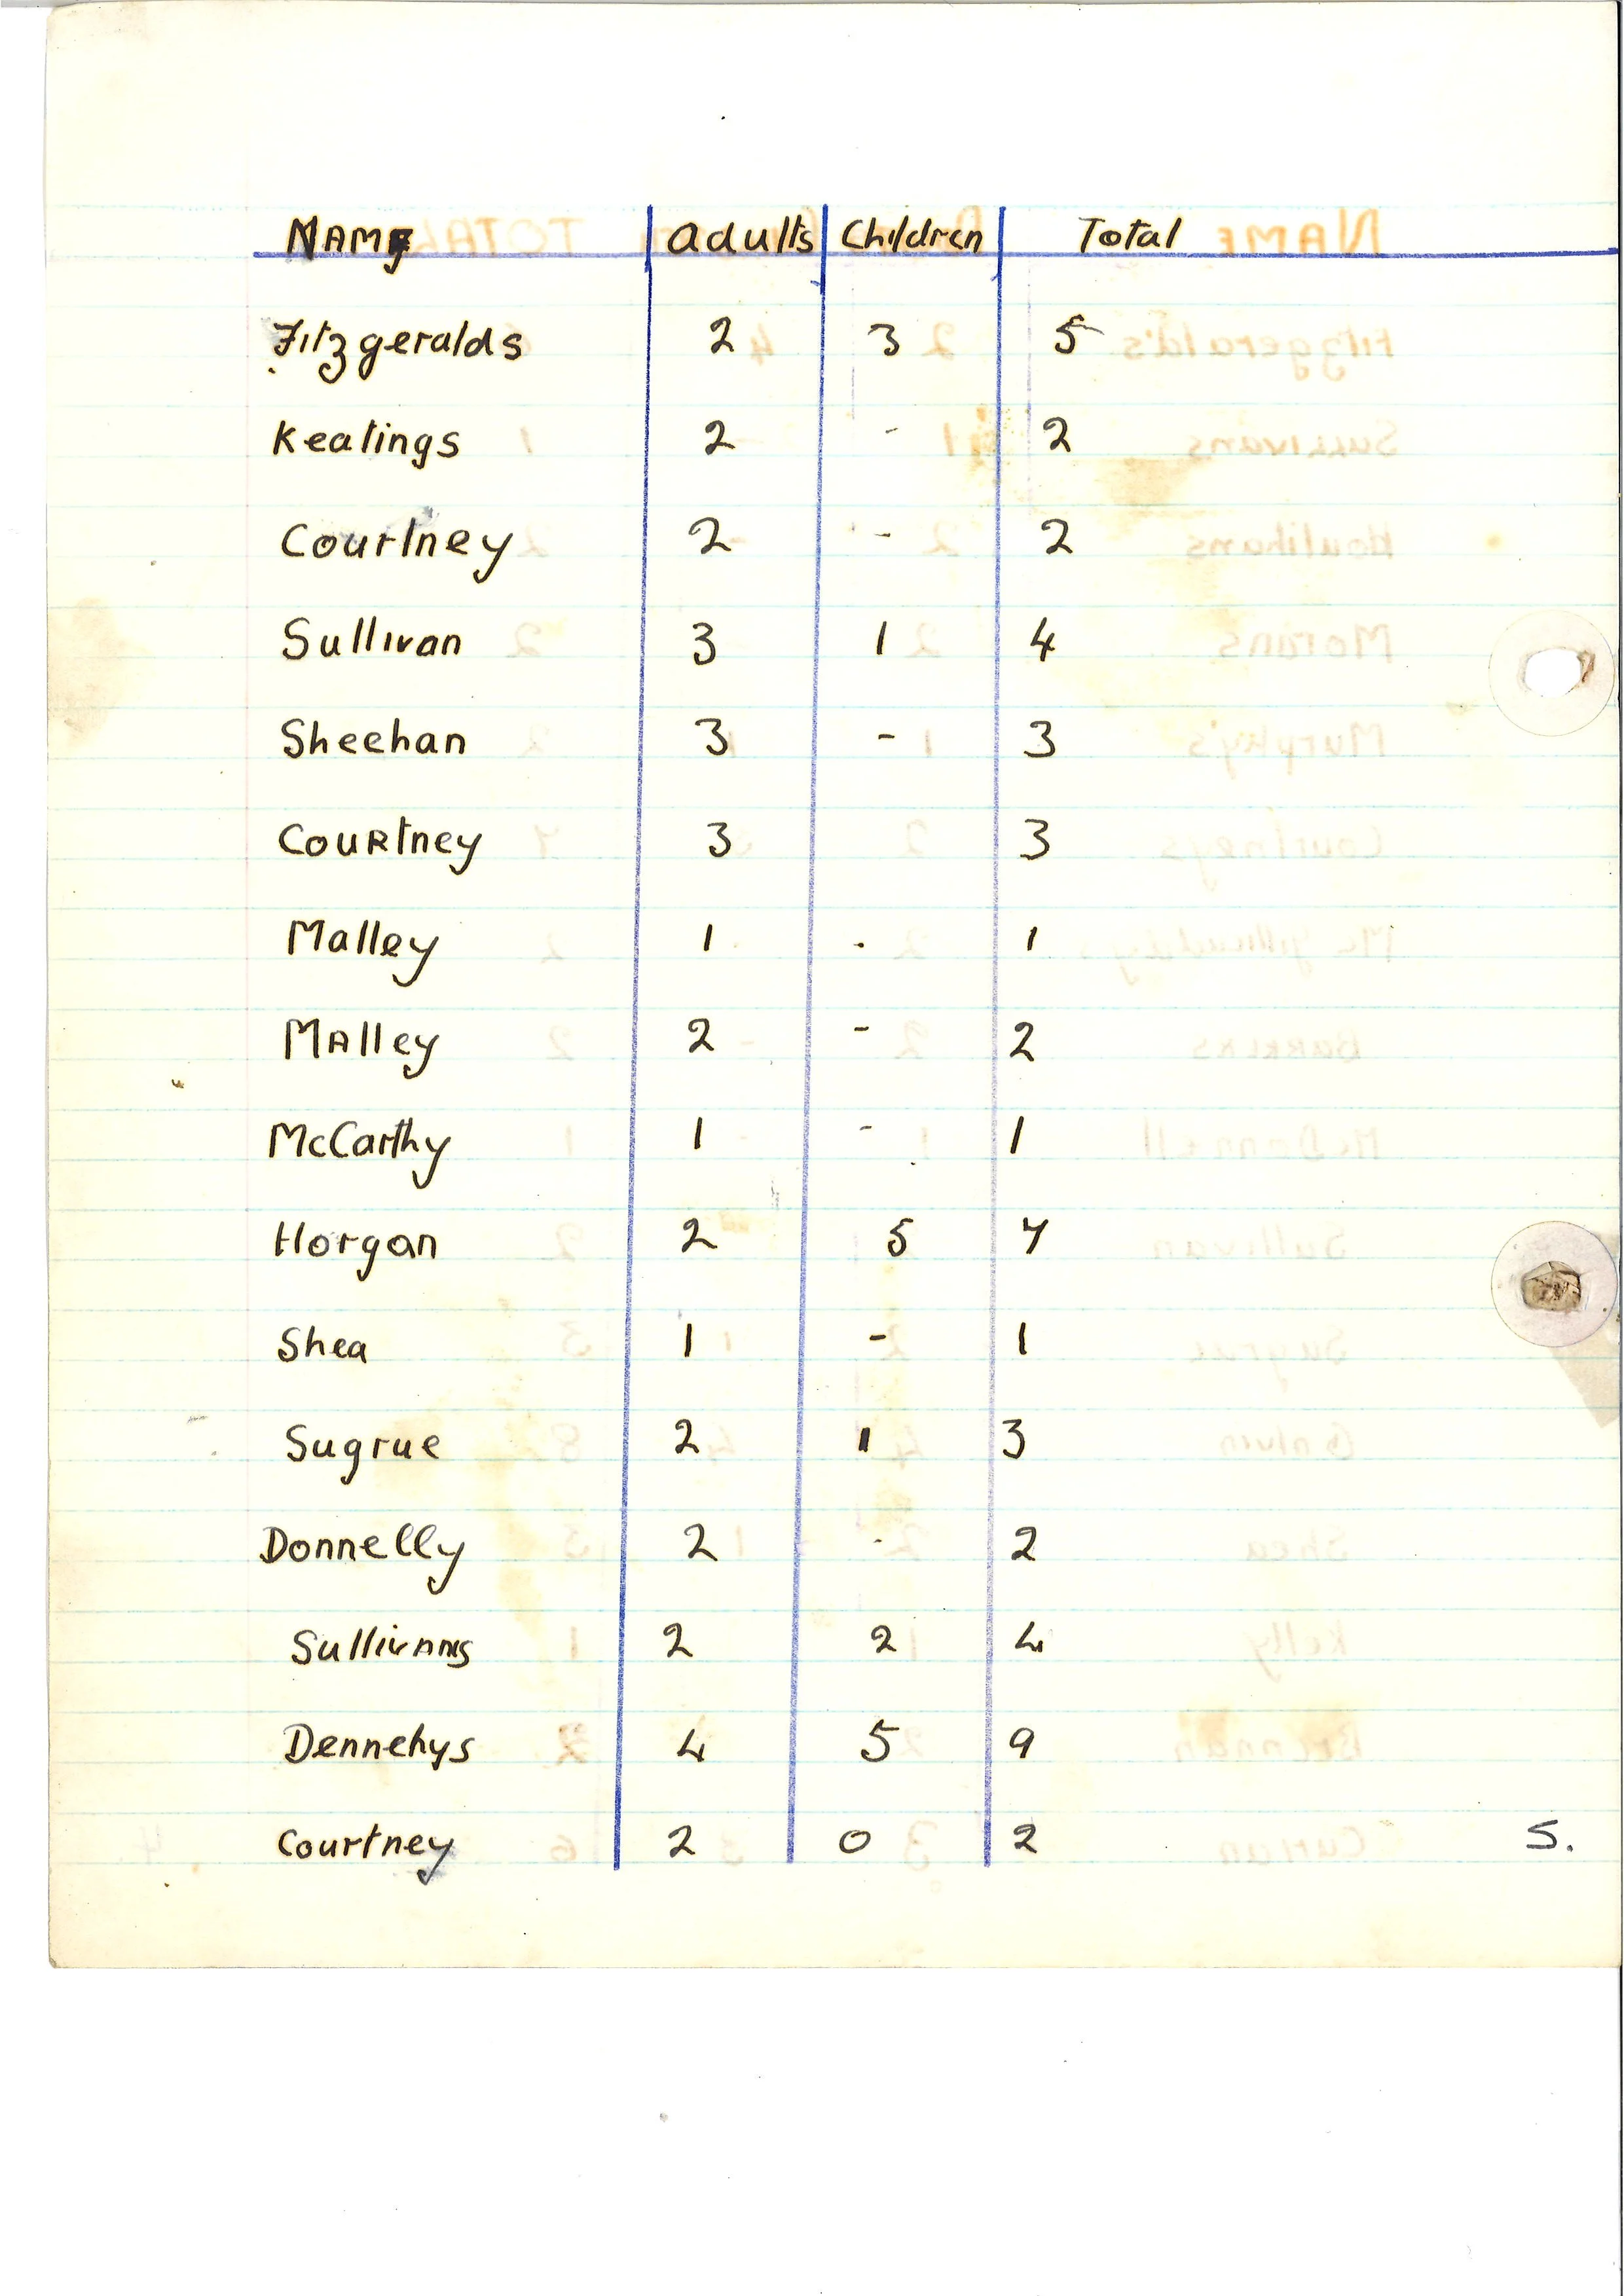 NAME adults Children Total
Fitzgeralds 2 3 5
Keatings 2 - 2
Courtney 2 - 2
Sullivan 3 1 4
Sheehan 3 - 3
Courtney 3 3
Malley 1 - 1
Malley 2 - 2
McCarthy 1 - 1
Horgan 2 5 7
Shea 1 - 1
Sugrue 2 1 3
Donnelly 2 - 2
Sullivans 2 2 4
Dennehys 4 5 9
Courtney 2 0 2
5.